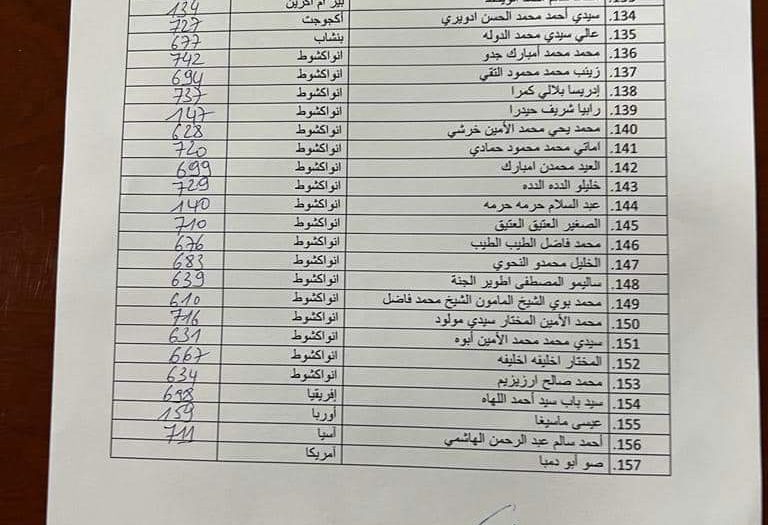 134
134. سيدي أحمد محمد الحسن ادويري أكجوجت 727
135. عالي سيدي محمد الدوله بنشاب 677
136. محمد محمد أمبارك جدو انواكشوط 742
137. زينب محمد محمود التقي انواكشوط 694
138. إدريسا بلالي كمرا انواكشوط 737
139. رابيا شريف حيدرا انواكشوط 147
140. محمد يحي محمد الأمين خرشي انواكشوط 628
141. اماتي محمد محمود حمادي انواكشوط 720
142. العيد محمدن امبارك انواكشوط 699
143. خليلو الدده الدده انواكشوط 729
144. عبد السلام حرمه حرمه انواكشوط 140
145. الصغير العتيق العتيق انواكشوط 710
146. محمد فاضل الطيب الطيب انواكشوط 676
147. الخليل محمدو النحوي انواكشوط 683
148. ساليمو المصطفى اطوير الجنة انواكشوط 639
149. محمد بوي الشيخ المامون الشيخ محمد فاضل انواكشوط 610
150. محمد الأمين المختار سيدي مولود انواكشوط 716
151. سيدي محمد محمد الأمين أبوه انواكشوط 631
152. المختار اخليفه اخليفه انواكشوط 667
153. محمد صالح ارزيزيم انواكشوط 634
154. سيد باب سيد أحمد اللهاه إفريقيا 698
155. عيسى ماسيغا أوربا 159
156. أحمد سالم عبد الرحمن الهاشمي آسيا 711
157. صو أبو دمبا أمريكا